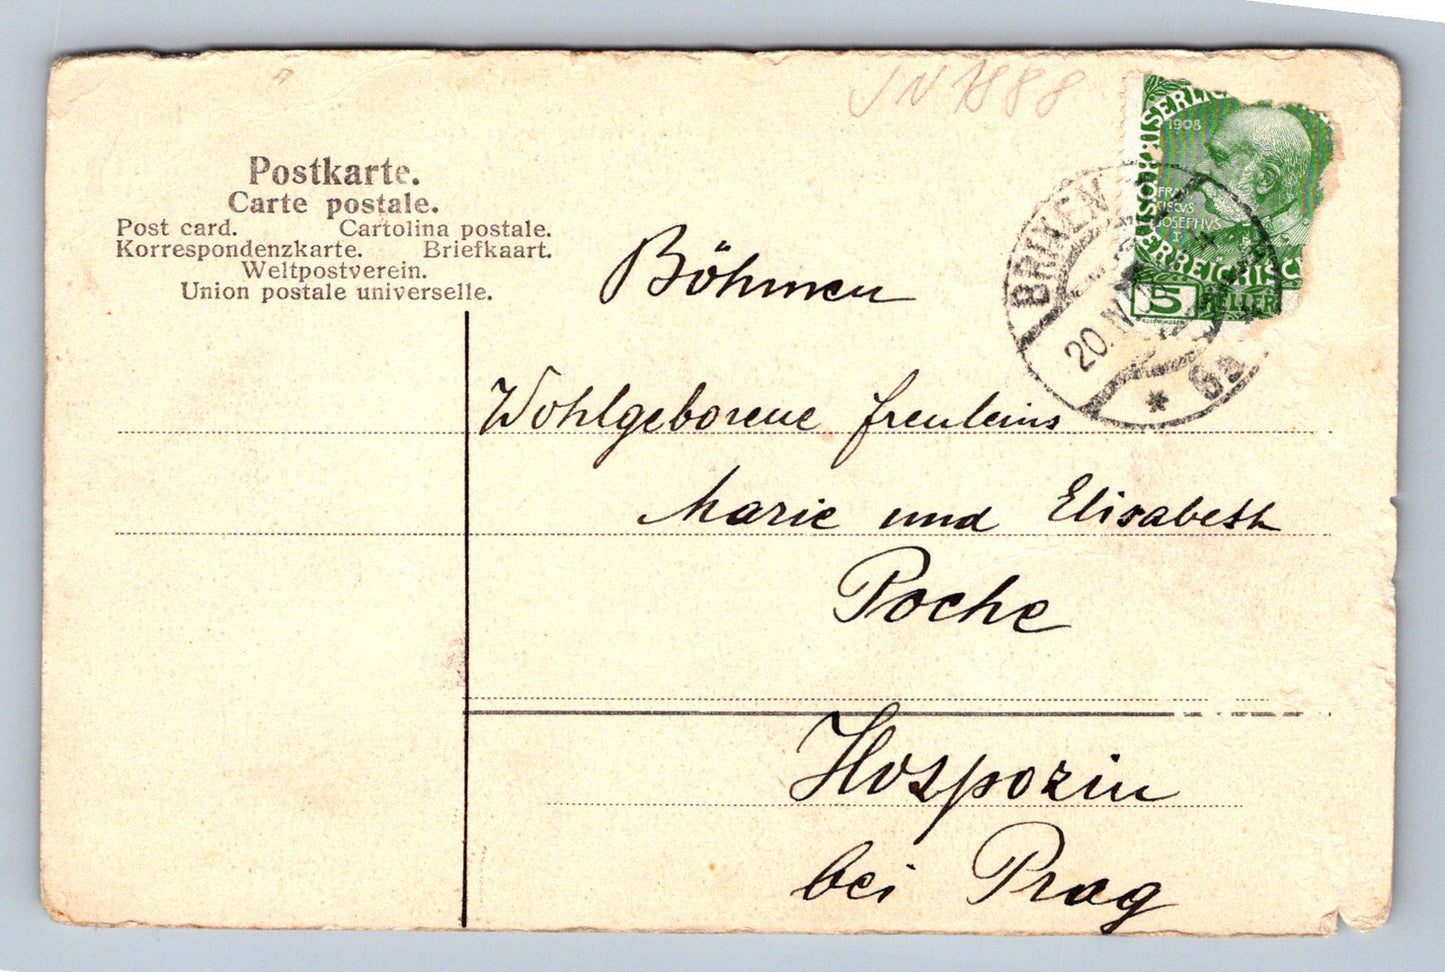 JN 1888
Postkarte.
Carte postale.
Post card. Cartolina postale.
Korrespondenzkarte. Briefkaart.
Weltpostverein.
Union postale universelle.
1908
FRAN
CISCVS
JOSEPHVS
I.
5 HELLER
BRIXEN
20.IV
* 6a
Böhmen
Wohlgeborene freuleins
Marie und Elisabeth
Poche
Hospozin
bei Prag